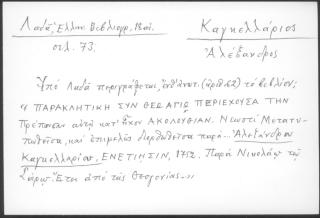 Λαδᾶ, Ἑλλην. Βιβλιογρ. 18ου.
σελ. 73.
Καγκελλάριος
Ἀλέξανδρος
Ὑπό Λαδᾶ περιγράφεται, ἐνθ' ἀνωτ. (ἀριθ. 62) τό βιβλίον;
" ΠΑΡΑΚΛΗΤΙΚΗ ΣΥΝ ΘΕΩ ΑΓΙΩ ΠΕΡΙΕΧΟΥΣΑ ΤΗΝ
Πρέπουσαν αὐτῇ κατ' Ἦχον ΑΚΟΛΟΥΘΙΑΝ. Νεωστί Μετατυ-
πωθεῖσα, καί ἐπιμελῶς διορθωθεῖσα παρά... Ἀλεξάνδρου
Καγκελλαρίου. ΕΝΕΤΙΗΣΙΝ, 1752. Παρά Νικολάῳ τῷ
Σάρῳ. Ἔτει ἀπό τῆς Θεογονίας..."